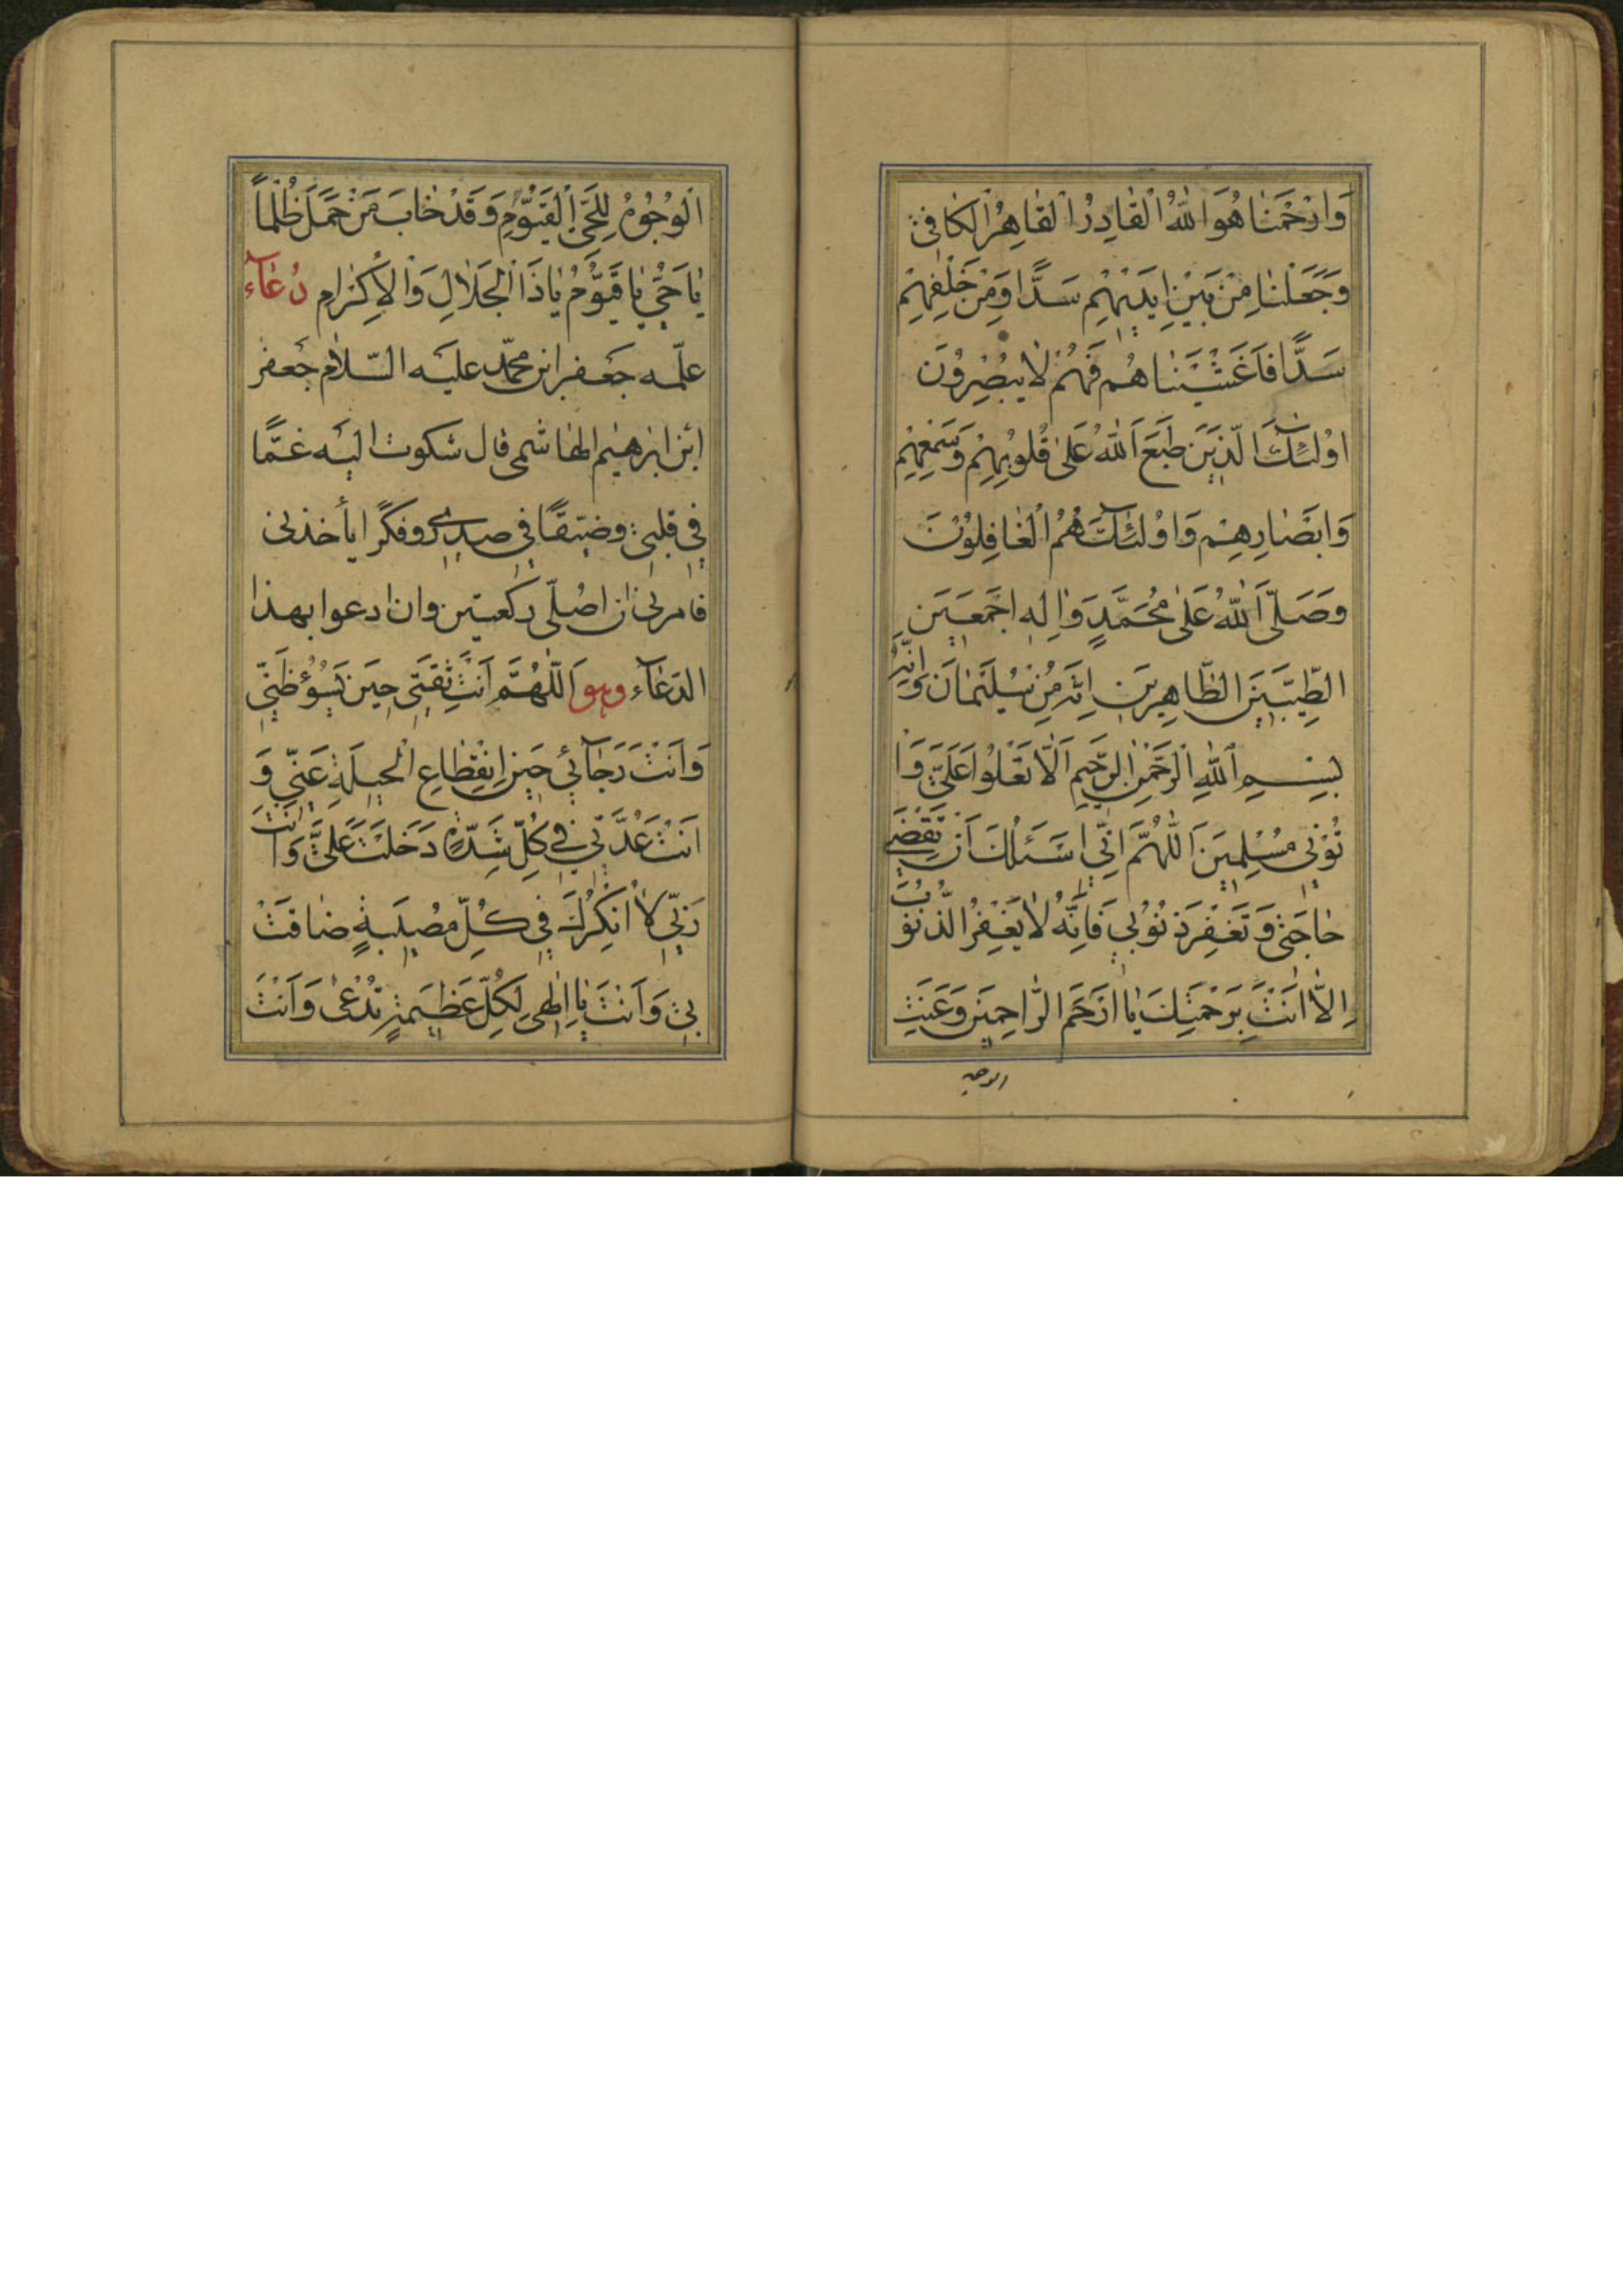 وَارْحَمْنٰا هُوَ اللّٰهُ الْقٰادِرُ الْقٰاهِرُ الْكٰافِى
وَجَعَلْنٰا مِنْ بَيْنِ اَيْدِيْهِمْ سَدًّا وَمِنْ خَلْفِهِمْ
سَدًّا فَاَغْشَيْنٰاهُمْ فَهُمْ لٰا يُبْصِرُونَ
اوُلٰئِكَ الَّذِيَنَ طَبَعَ اللّٰهُ عَلىٰ قُلوُبِهِمْ وَسَمْعِهِمْ
وَابَصْٰارِهِمْ وَاوُلٰئِكَ هُمُ الْغٰافِلوُنَ
وَصَلَّى اللّٰهُ عَلىٰ مُحَمَّدٍ وَاٰلِهِ اَجْمَعيَنَ
الطَّيِّبيَنَ الطّٰاهِريَن اِنَّهُ مِنْ سُلَيْمٰانَ وَاِنَّهُ
بِسْمِ اللّٰهِ الرَّحْمٰنِ الرَّحيَمِ اَلّٰا تَعْلوُا عَلَىَّ وَاْ
تُوْنى مُسْلِميَنَ اَللّٰهُمَّ اِنّي اَسْئَلُكَ اَنْ تَقْضِىَ
حٰاجَتى وَتَغْفِرَ ذُنوُبي فَاِنَّهُ لٰا يَغْفِرُ الذُّنوُبَ
اِلّٰا اَنْتَ بِرَحْمَتِكَ يٰا اَرْحَمَ الرّٰاحِميَن وَعَنَتِ
الوجوه
الْوُجُوُهُ لِلْحَىِّ الْقَيّوُمِ وَقَدْ خٰابَ مَنْ حَمَلَ ظُلْماً
يٰا حَىُّ يٰا قَيّوُمُ يٰا ذَا الْجَلٰالِ وَالْاِكْرٰامِ دُعٰآء
علّمه جعفر ابن محمّد عليه السّلام جعفر
ابن ابرهيم الهاشمى قال شكوت اليه غمًّا
فى قلبى وضيقًا فى صدرى وفكرًا يأخذنى
فامرنى ان اصُلّى ركعتين وان ادعوا بهذا
الدّعآء وهو اَللّٰهُمَّ اَنْتَ ثِقَتى حيَن يَسوُؤُ ظَنّى
وَاَنْتَ رَجٰآئي حيَن اِنْقِطٰاعِ الْحيلَةِ عَنّي وَ
اَنْتَ عُدَّتي في كُلِّ شِدَّةٍ دَخَلَتْ عَلَىَّ وَاَنْتَ
رَبّي لٰا اُنْكِرُكَ فى كُلِّ مُصيبَةٍ ضٰاقَتْ
بى وَاَنْتَ يٰا اِلٰهى لِكُلِّ عَظيمَةٍ تُدْعىٰ وَاَنْتَ